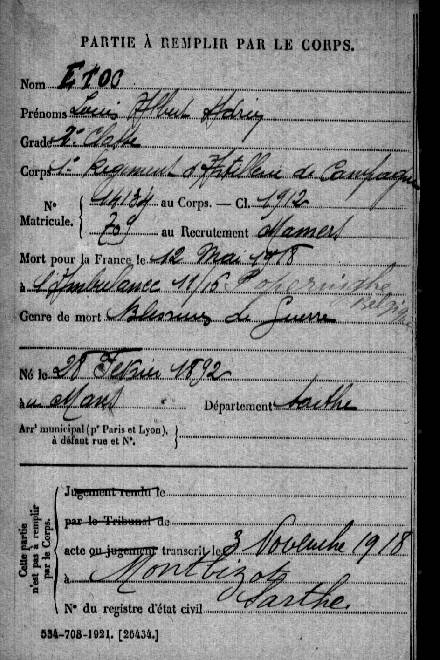 PARTIE À REMPLIR PAR LE CORPS.
Nom ETOC
Prénoms Louis Albert Adrien
Grade 2e Classe
Corps 1er Régiment d'Artillerie de Campagne
N° Matricule. { 14134 au Corps. — Cl. 1912
709 au Recrutement Mamers
Mort pour la France le 12 Mai 1918
à l'Ambulance 11/15 Poperinghe
Belgique
Genre de mort Blessures de Guerre
Né le 28 Février 1892
au Mans Département Sarthe
Arrt municipal (pr Paris et Lyon), à défaut rue et N°. }
Cette partie n'est pas à remplir par le Corps.
Jugement rendu le
par le Tribunal de
acte ou jugement transcrit le 3 Novembre 1918
à Montbizot
Sarthe
N° du registre d'état civil
534-708-1921. [26434.]